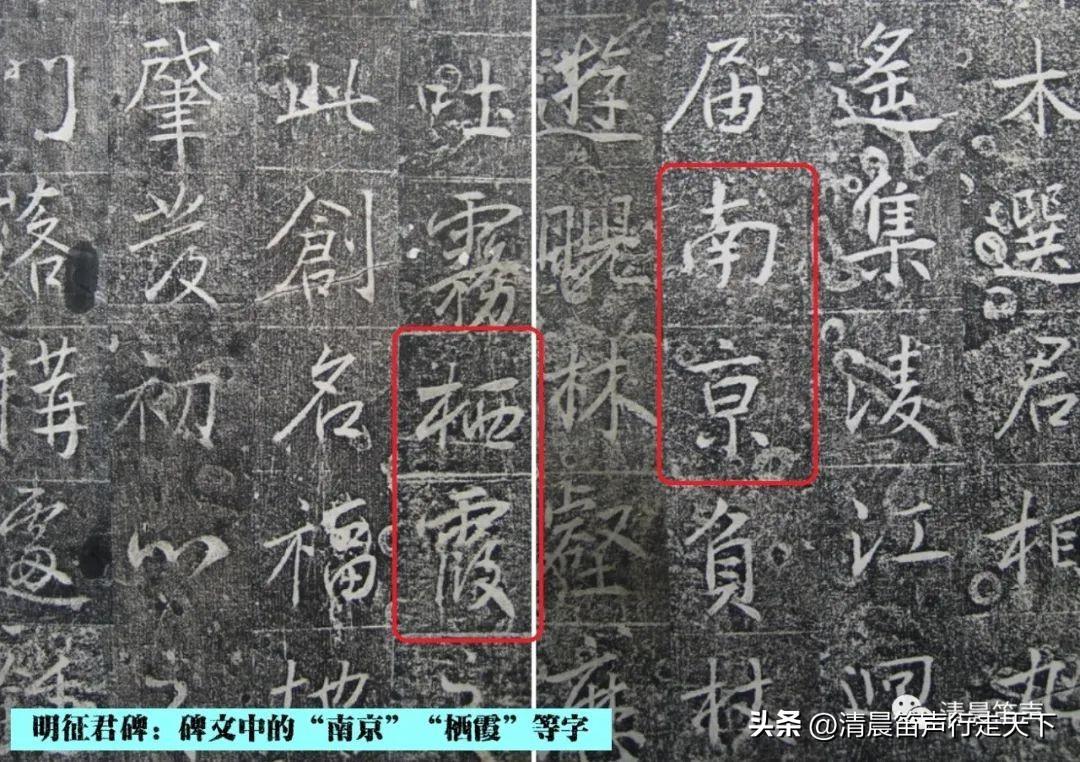 木選君相
遙集淩江
届南京負杖
遊林壑
吐霧栖霞之
此創名福地
肇發初心
門落構處
明征君碑：碑文中的“南京”“栖霞”等字
清晨笛声
头条 @清晨笛声行走天下